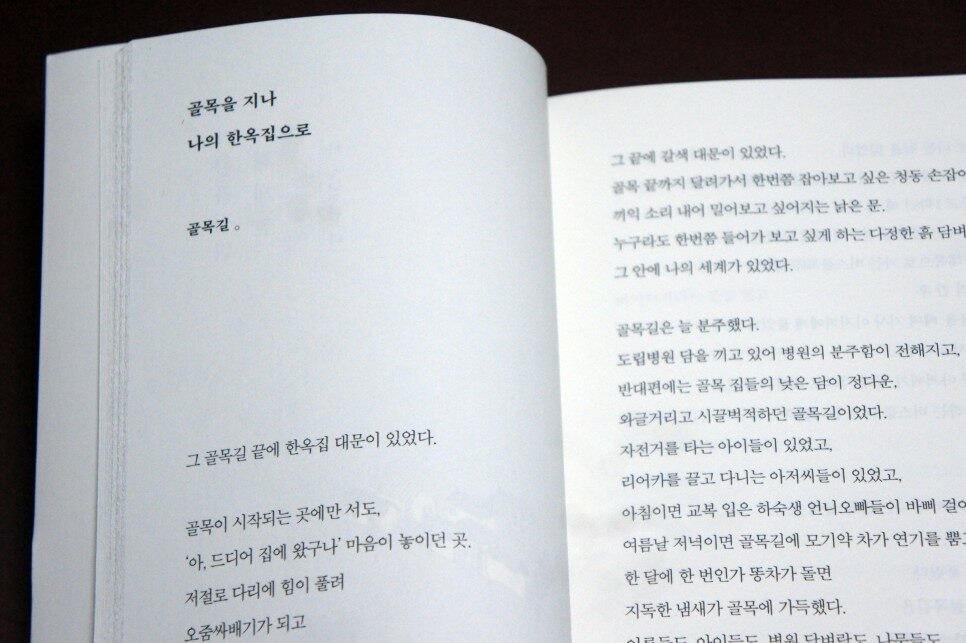 골목을 지나
나의 한옥집으로
골목길 。
그 골목길 끝에 한옥집 대문이 있었다.
골목이 시작되는 곳에만 서도,
‘아, 드디어 집에 왔구나’ 마음이 놓이던 곳.
저절로 다리에 힘이 풀려
오줌싸배기가 되고
그 끝에 갈색 대문이 있었다.
골목 끝까지 달려가서 한번쯤 잡아보고 싶은 청동 손잡이
끼익 소리 내어 밀어보고 싶어지는 낡은 문.
누구라도 한번쯤 들어가 보고 싶게 하는 다정한 흙 담벼
그 안에 나의 세계가 있었다.
골목길은 늘 분주했다.
도립병원 담을 끼고 있어 병원의 분주함이 전해지고,
반대편에는 골목 집들의 낮은 담이 정다운,
와글거리고 시끌벅적하던 골목길이었다.
자전거를 타는 아이들이 있었고,
리어카를 끌고 다니는 아저씨들이 있었고,
아침이면 교복 입은 하숙생 언니오빠들이 바삐 걸어
여름날 저녁이면 골목길에 모기약 차가 연기를 뿜고
한 달에 한 번인가 똥차가 돌면
지독한 냄새가 골목에 가득했다.
어른들도, 아이들도, 병원 담벼락도, 나무들도